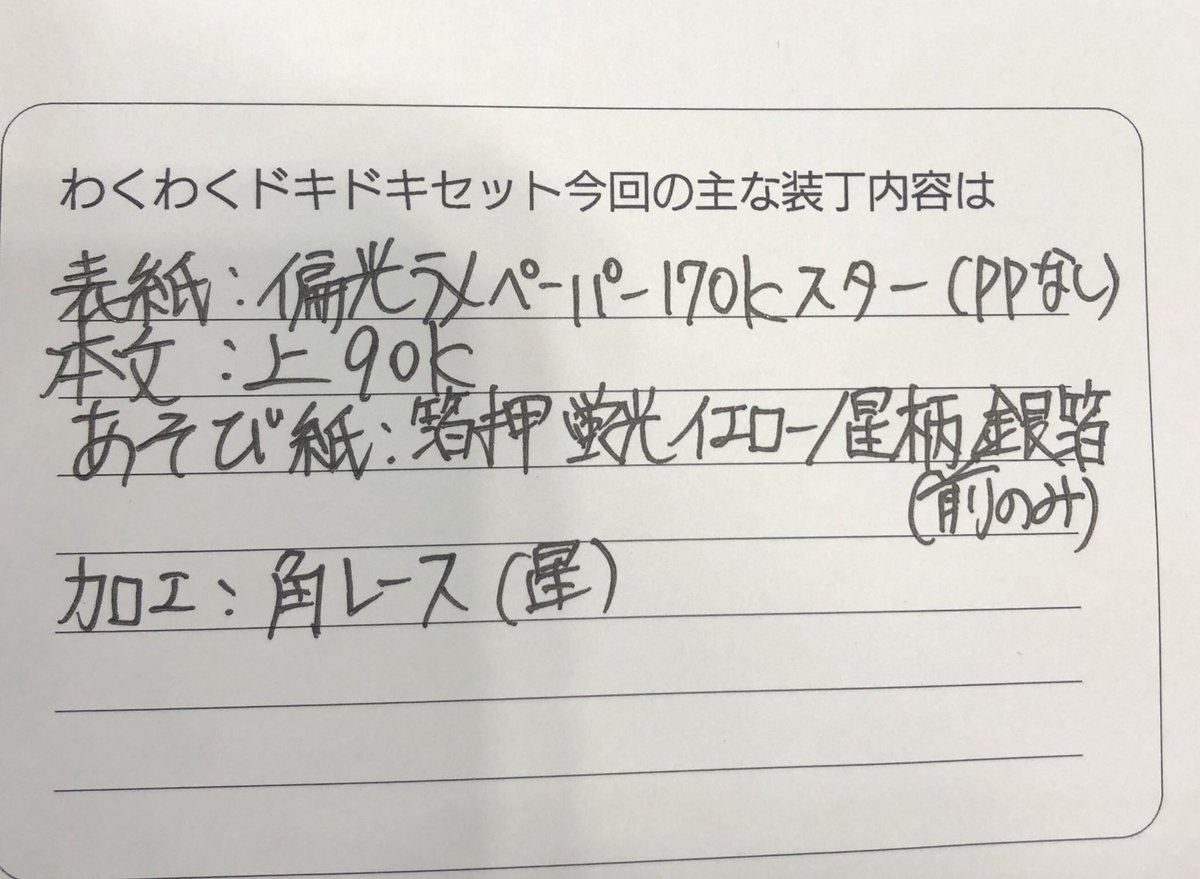 わくわくドキドキセット今回の主な装丁内容は
表紙：偏光ラメペーパー170kスター(PPなし)
本文：上90k
あそび紙：箔押 蛍光イエロー/星柄銀箔
(前のみ)
加工：角レース(星)